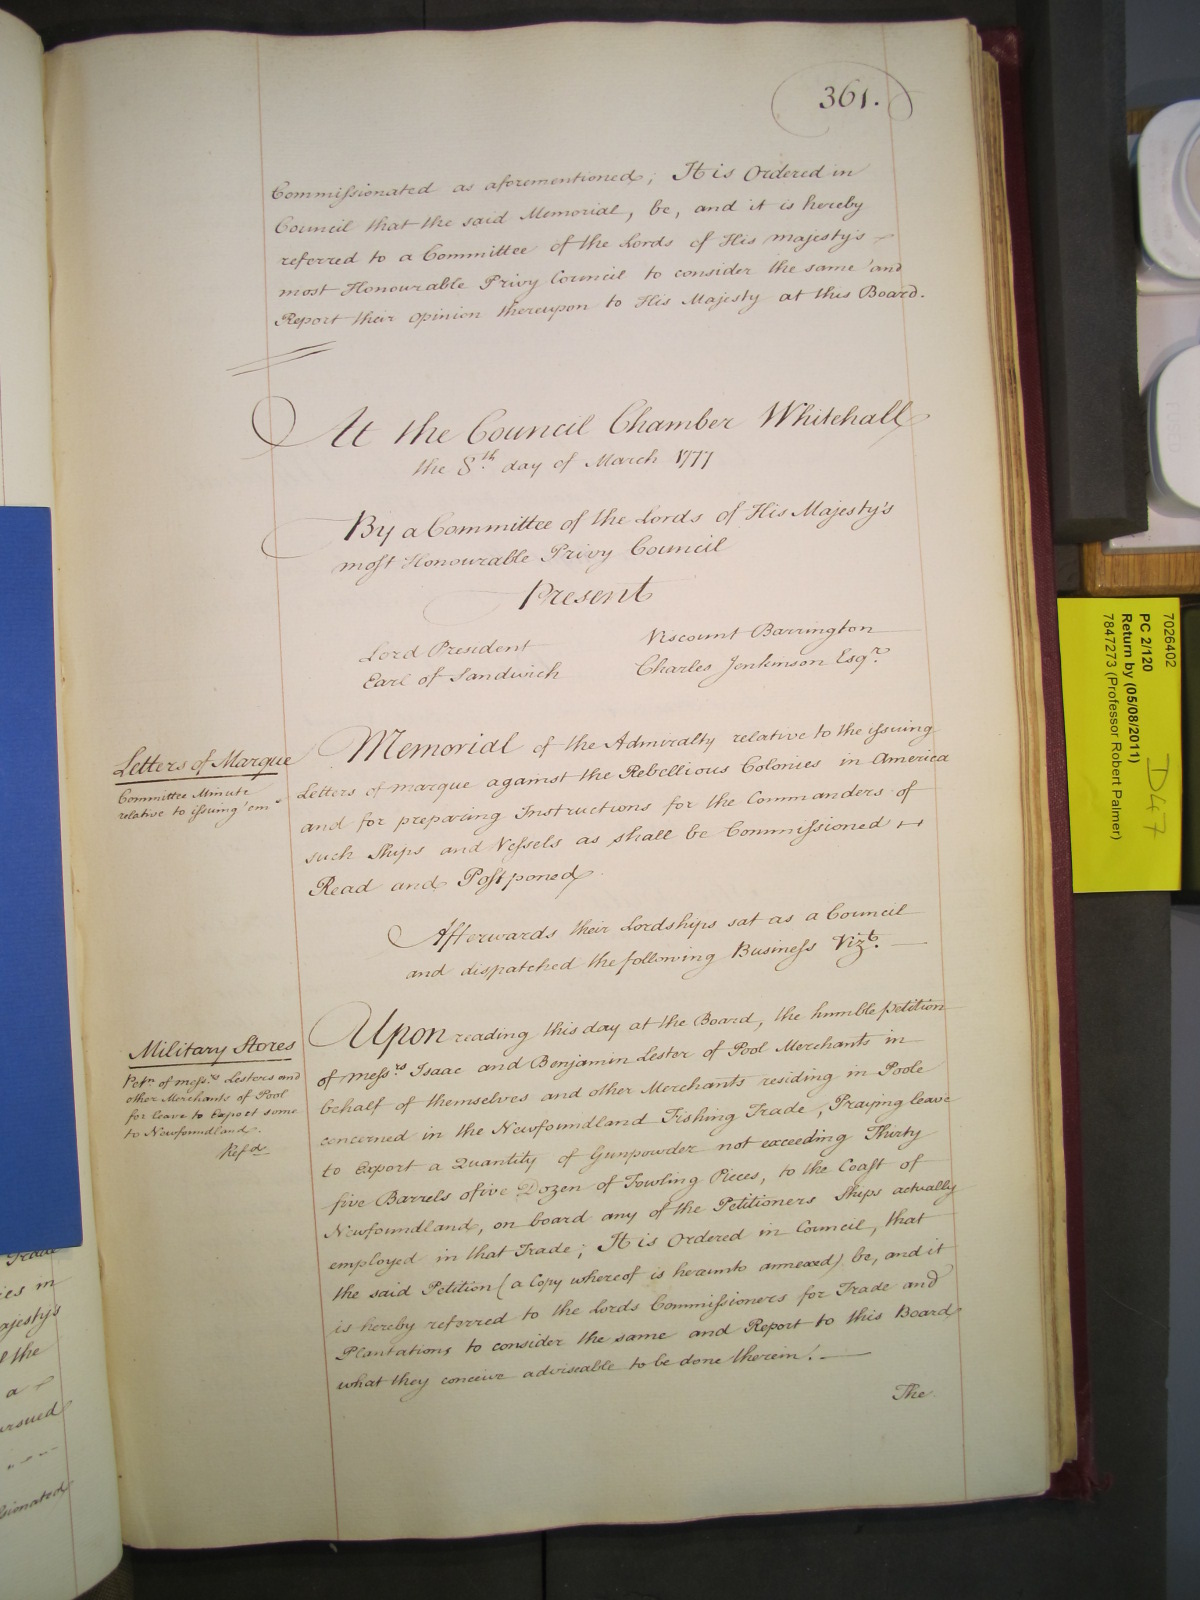 361.
Commissionated as aforementioned; It is Ordered in
Council that the said Memorial, be, and it is hereby
referred to a Committee of the Lords of His Majesty's
most Honourable Privy Council to consider the same and
Report their opinion thereupon to His Majesty at this Board.
At the Council Chamber Whitehall
the 8th day of March 1777
By a Committee of the Lords of His Majesty's
most Honourable Privy Council
Present
Lord President
Earl of Sandwich
Viscount Barrington
Charles Jenkinson Esqr.
Letters of Marque
Committee Minute
relative to issuing 'em
Memorial of the Admiralty relative to the issuing
Letters of marque against the Rebellious Colonies in America
and for preparing Instructions for the Commanders of
such Ships and Vessels as shall be Commissioned
Read and Postponed.
Afterwards their Lordships sat as a Council
and dispatched the following Business Vizt.
Military Stores
Petn. of Messrs. Lesters and
other Merchants of Pool
for leave to Export some
to Newfoundland.
Refd.
Upon reading this day at the Board, the humble petition
of Messrs Isaac and Benjamin Lester of Pool Merchants in
behalf of themselves and other Merchants residing in Poole
concerned in the Newfoundland Fishing Trade, Praying leave
to Export a Quantity of Gunpowder not exceeding Thirty
five Barrels & five Dozen of Fowling Pieces, to the Coast of
Newfoundland, on board any of the Petitioners Ships actually
employed in that Trade; It is Ordered in Council, that
the said Petition (a Copy whereof is hereunto annexed) be, and it
is hereby referred to the Lords Commissioners for Trade and
Plantations to consider the same and Report to this Board
what they conceive adviseable to be done therein.
The
Trade
ies in
ajesty's
the
a
ursued
sionated
7026402
PC 2/120
Return by (05/08/2011)
7847273 (Professor Robert Palmer)
D47